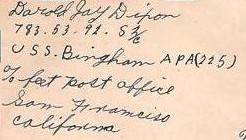 Darold Jay Dixon
793.53.92. S 2/c
USS. Bingham APA(225)
c/o feet post office
San Francisco
California